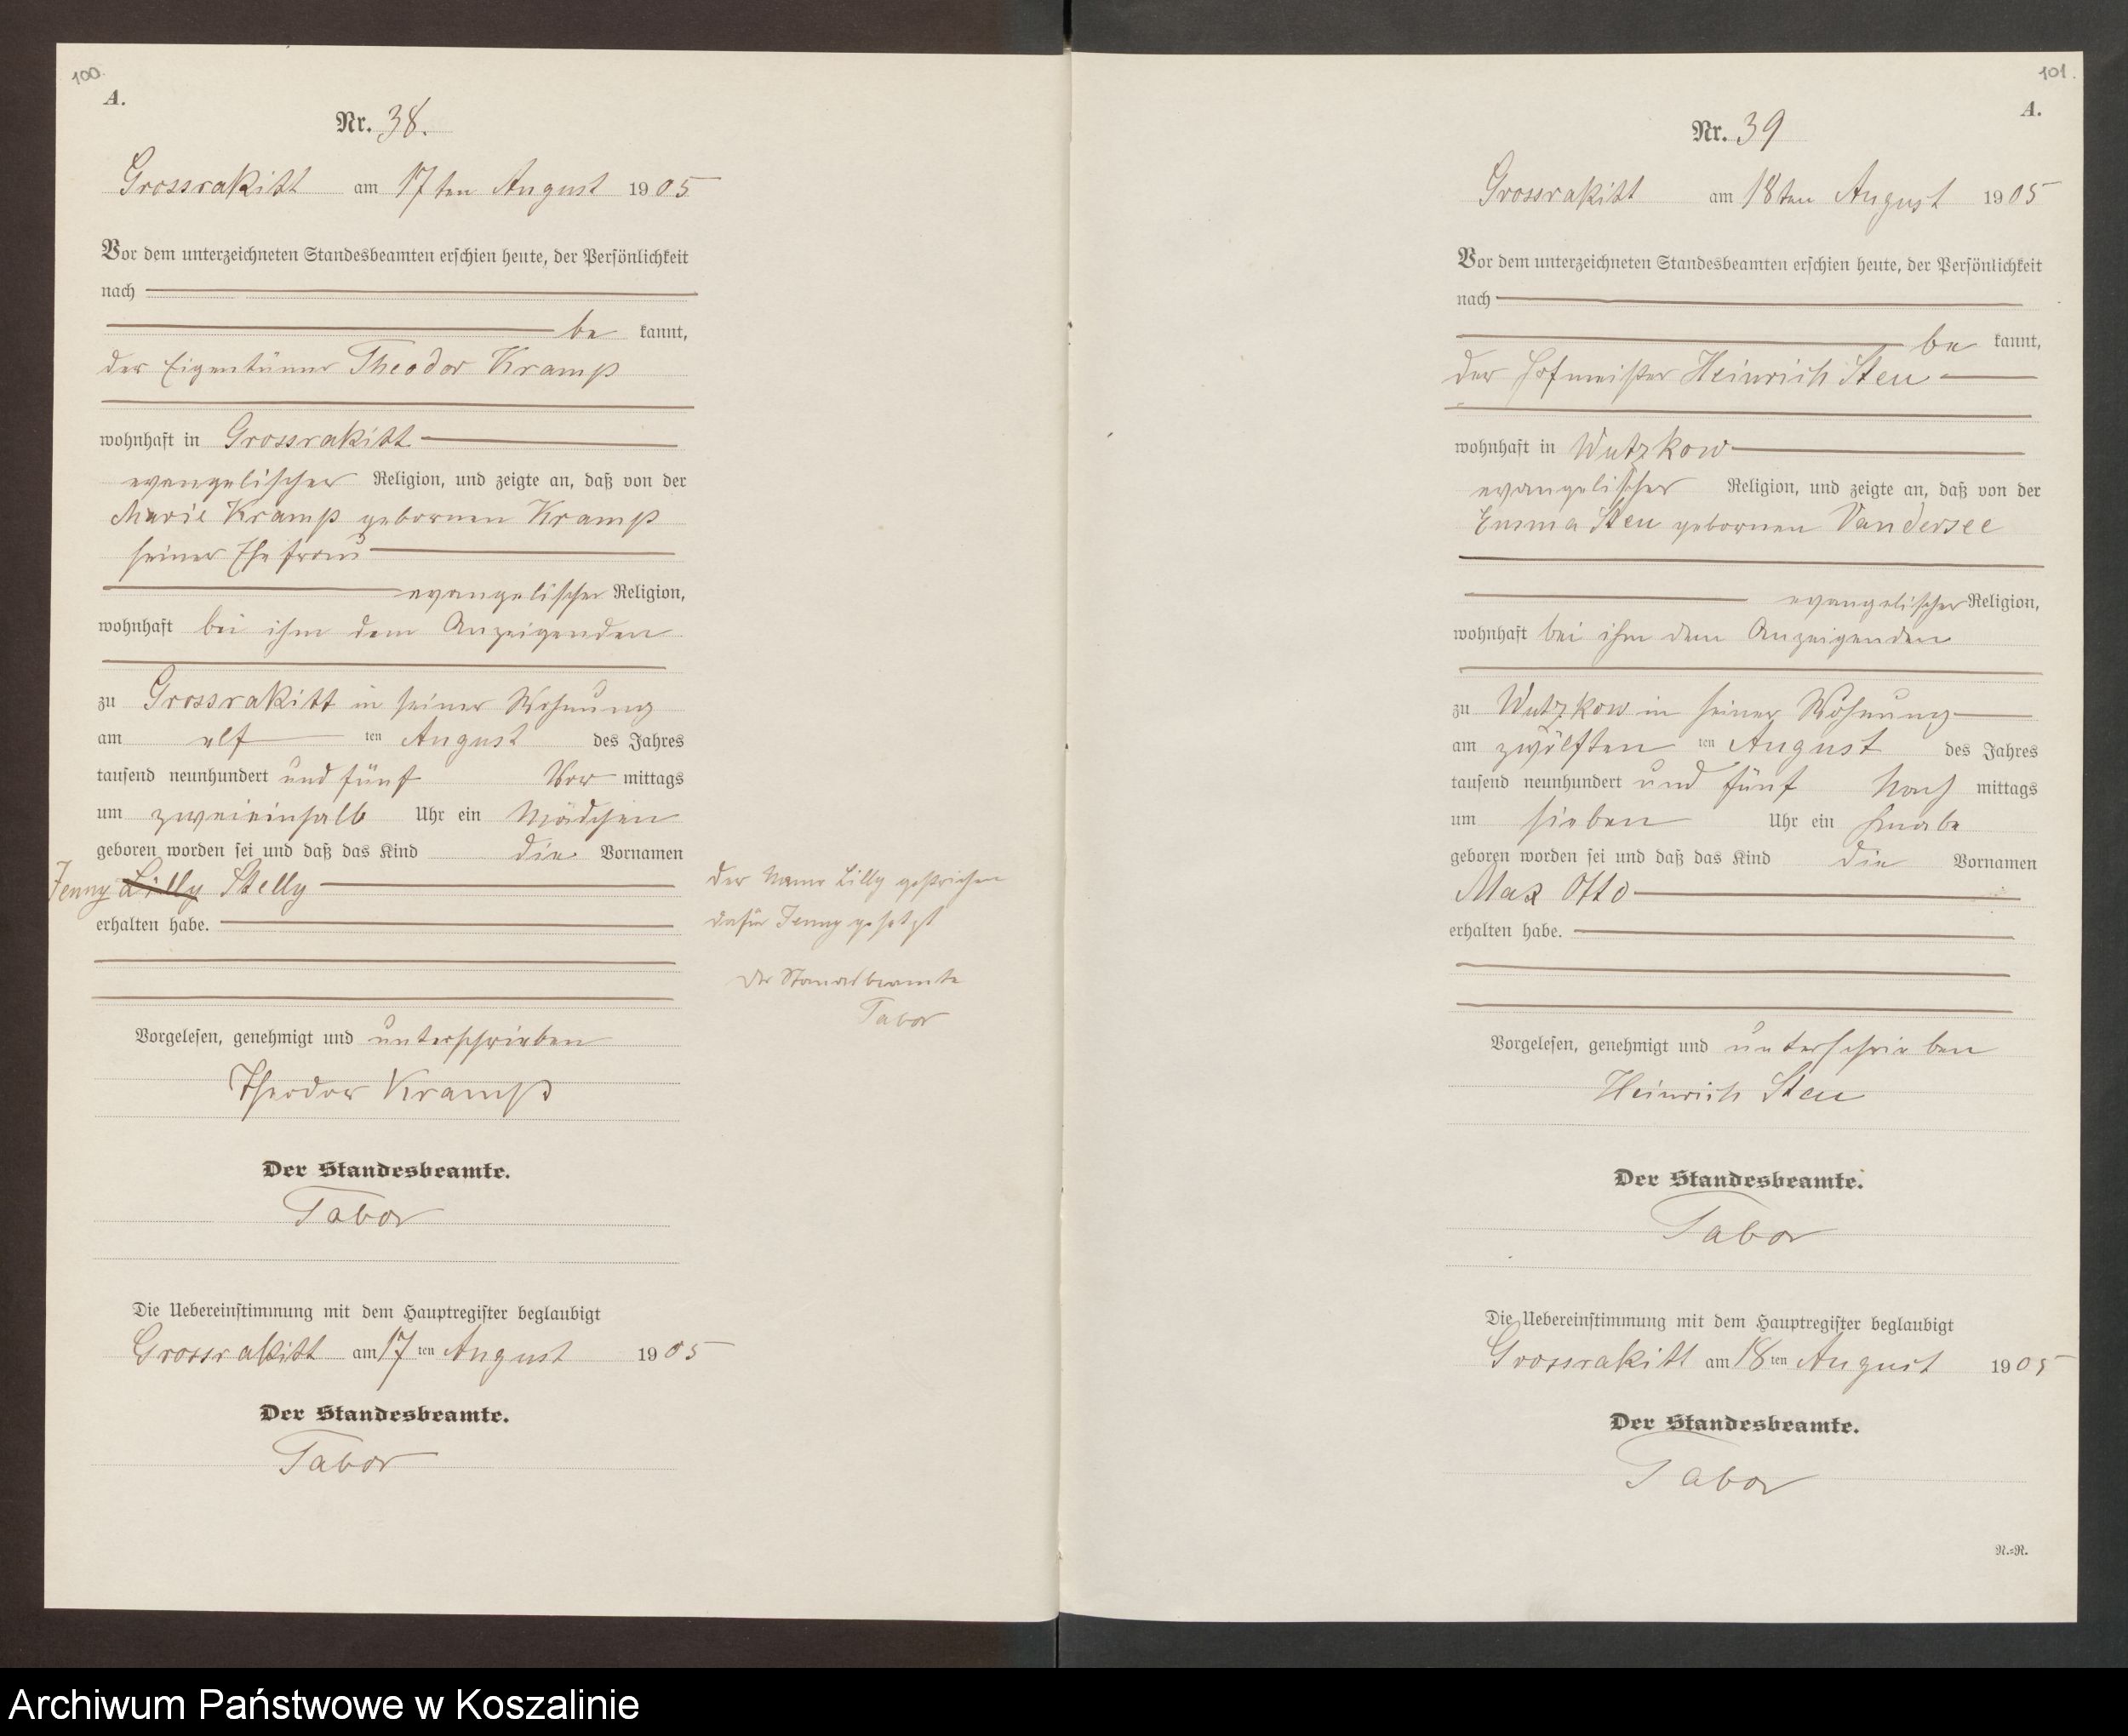 100.
A.
Nr. 38.
Grossrakitt am 17ten August 1905
Vor dem unterzeichneten Standesbeamten erschien heute, der Persönlichkeit
nach
be kannt,
der Eigentümer Theodor Kramp
wohnhaft in Grossrakitt
evangelischer Religion, und zeigte an, daß von der
Marie Kramp gebornen Kramp
seiner Ehefrau
evangelischer Religion,
wohnhaft bei ihm dem Anzeigenden
zu Grossrakitt in seiner Wohnung
am elf ten August des Jahres
tausend neunhundert und fünf Vor mittags
um zweieinhalb Uhr ein Mädchen
geboren worden sei und daß das Kind die Vornamen
Jenny Lilly Stelly
erhalten habe.
der Name Lilly gestrichen
dafür Jenny gesetzt
Der Standesbeamte
Tabor
Vorgelesen, genehmigt und unterschrieben
Theodor Kramp
Der Standesbeamte.
Tabor
Die Uebereinstimmung mit dem Hauptregister beglaubigt
Grossrakitt am 17 ten August 1905
Der Standesbeamte.
Tabor
101.
A.
Nr. 39
Grossrakitt am 18ten August 1905
Vor dem unterzeichneten Standesbeamten erschien heute, der Persönlichkeit
nach
be kannt,
der Hofmeister Heinrich Steu
wohnhaft in Wutzkow
evangelischer Religion, und zeigte an, daß von der
Emma Steu gebornen Vandersee
evangelischer Religion,
wohnhaft bei ihm dem Anzeigenden
zu Wutzkow in seiner Wohnung
am zwölften ten August des Jahres
tausend neunhundert und fünf Nach mittags
um sieben Uhr ein Knabe
geboren worden sei und daß das Kind die Vornamen
Max Otto
erhalten habe.
Vorgelesen, genehmigt und unterschrieben
Heinrich Steu
Der Standesbeamte.
Tabor
Die Uebereinstimmung mit dem Hauptregister beglaubigt
Grossrakitt am 18 ten August 1905
Der Standesbeamte.
Tabor
N.=R.
Archiwum Państwowe w Koszalinie